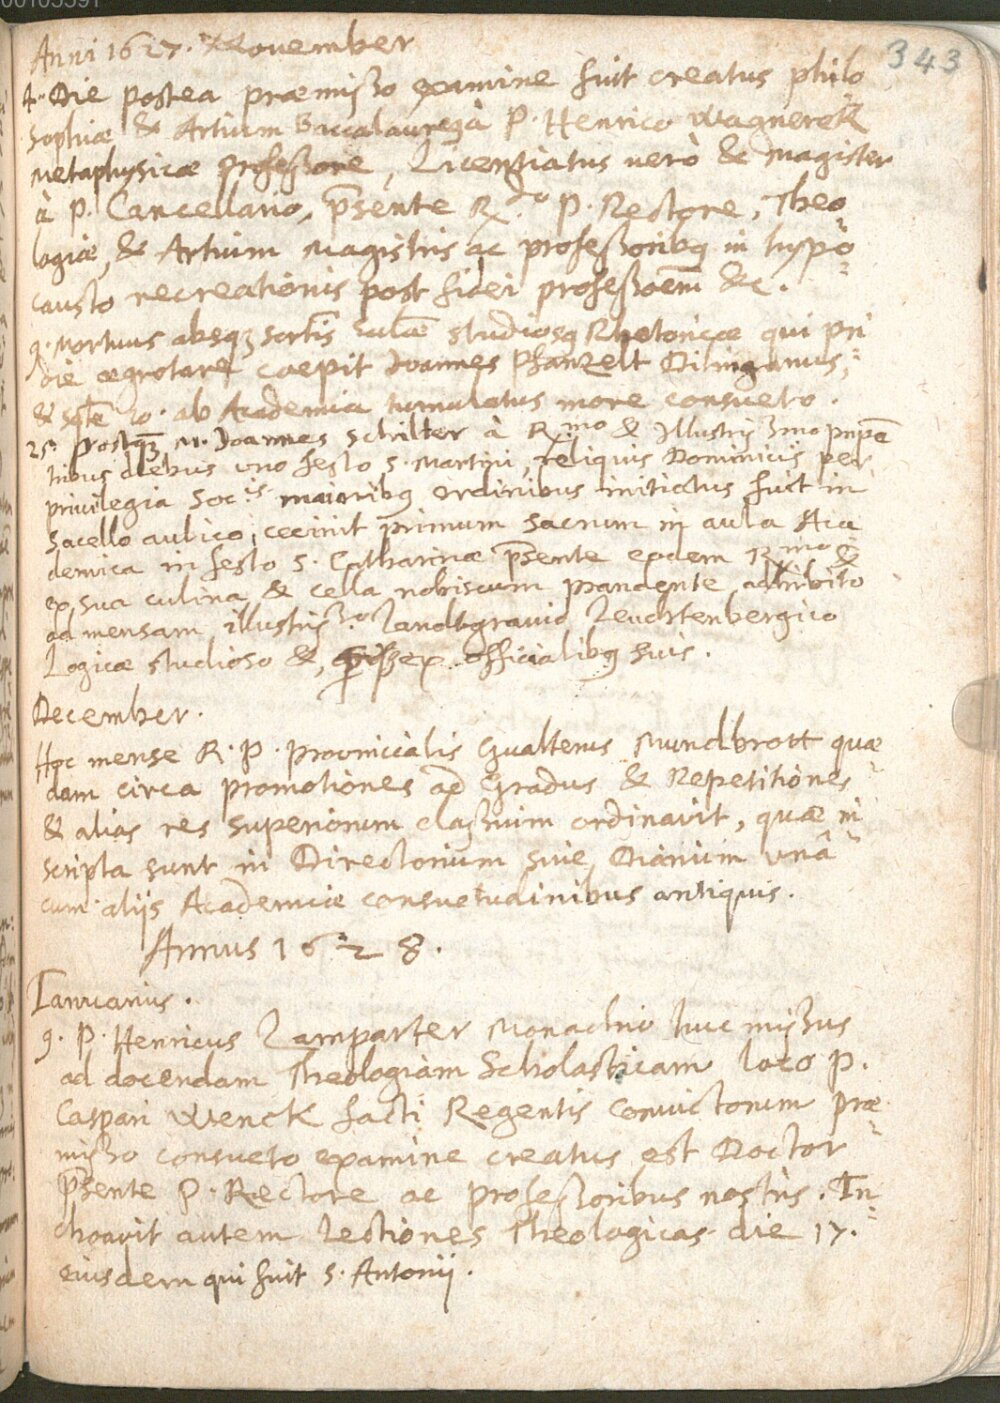 343
Anni 1627. November
4. Die postea præmisso examine fuit creatus philo
sophiæ & Artium Baccalaureus à P. Henrico Wagnerek
Metaphysicæ professore, Licentiatus verò & Magister
à P. Cancellario, psente R.do P. Rectore, Theo=
logiæ, & Artium Magistris ac professoribq in hypo=
causto recreationis post fidei professioem &c.
9. Mortuus absqz sortis studiosq Rhetoricæ qui pri
die ægrotare coepit Joannes Pfanzelt Dilinganus,
& 10. ab Academia tumulatus more consueto.
25. Postqz M. Joannes Schilter à R.mo & Illustrissimo pnpe
tribus diebus uno festo S. Martini, reliquis Dominicis per
privilegia Soc.is maioribq ordinibus initiatus fuit in
Sacello aulico, cecinit primum sacrum in aula Aca
demica in festo S. Catharinæ psente eodem R.mo &
ex sua culina & cella nobiscum prandente, adhibito
ad mensam illustriss.o Landtgravio Leuchtenbergico
Logicæ studioso & officialibq suis.
December.
Hoc mense R. P. Provincialis Gualterus Mundbrott quæ=
dam circa promotiones ad Gradus & Repetitiones
& alias res superiorum classium ordinavit, quæ in=
scripta sunt in Directorium sive Diarium unâ
cum aliis Academiæ consuetudinibus antiquis.
Annus 1628.
Ianuarius.
9. P. Henricus Lamparter Monachio huc missus
ad docendam Theologiam Scholasticam loco P.
Caspari Wenck facti Regentis convictorum præ=
misso consueto examine creatus est Doctor
psente P. Rectore ac professoribus nostris. In=
choavit autem lectiones Theologicas die 17.
eiusdem qui fuit S. Antonij.